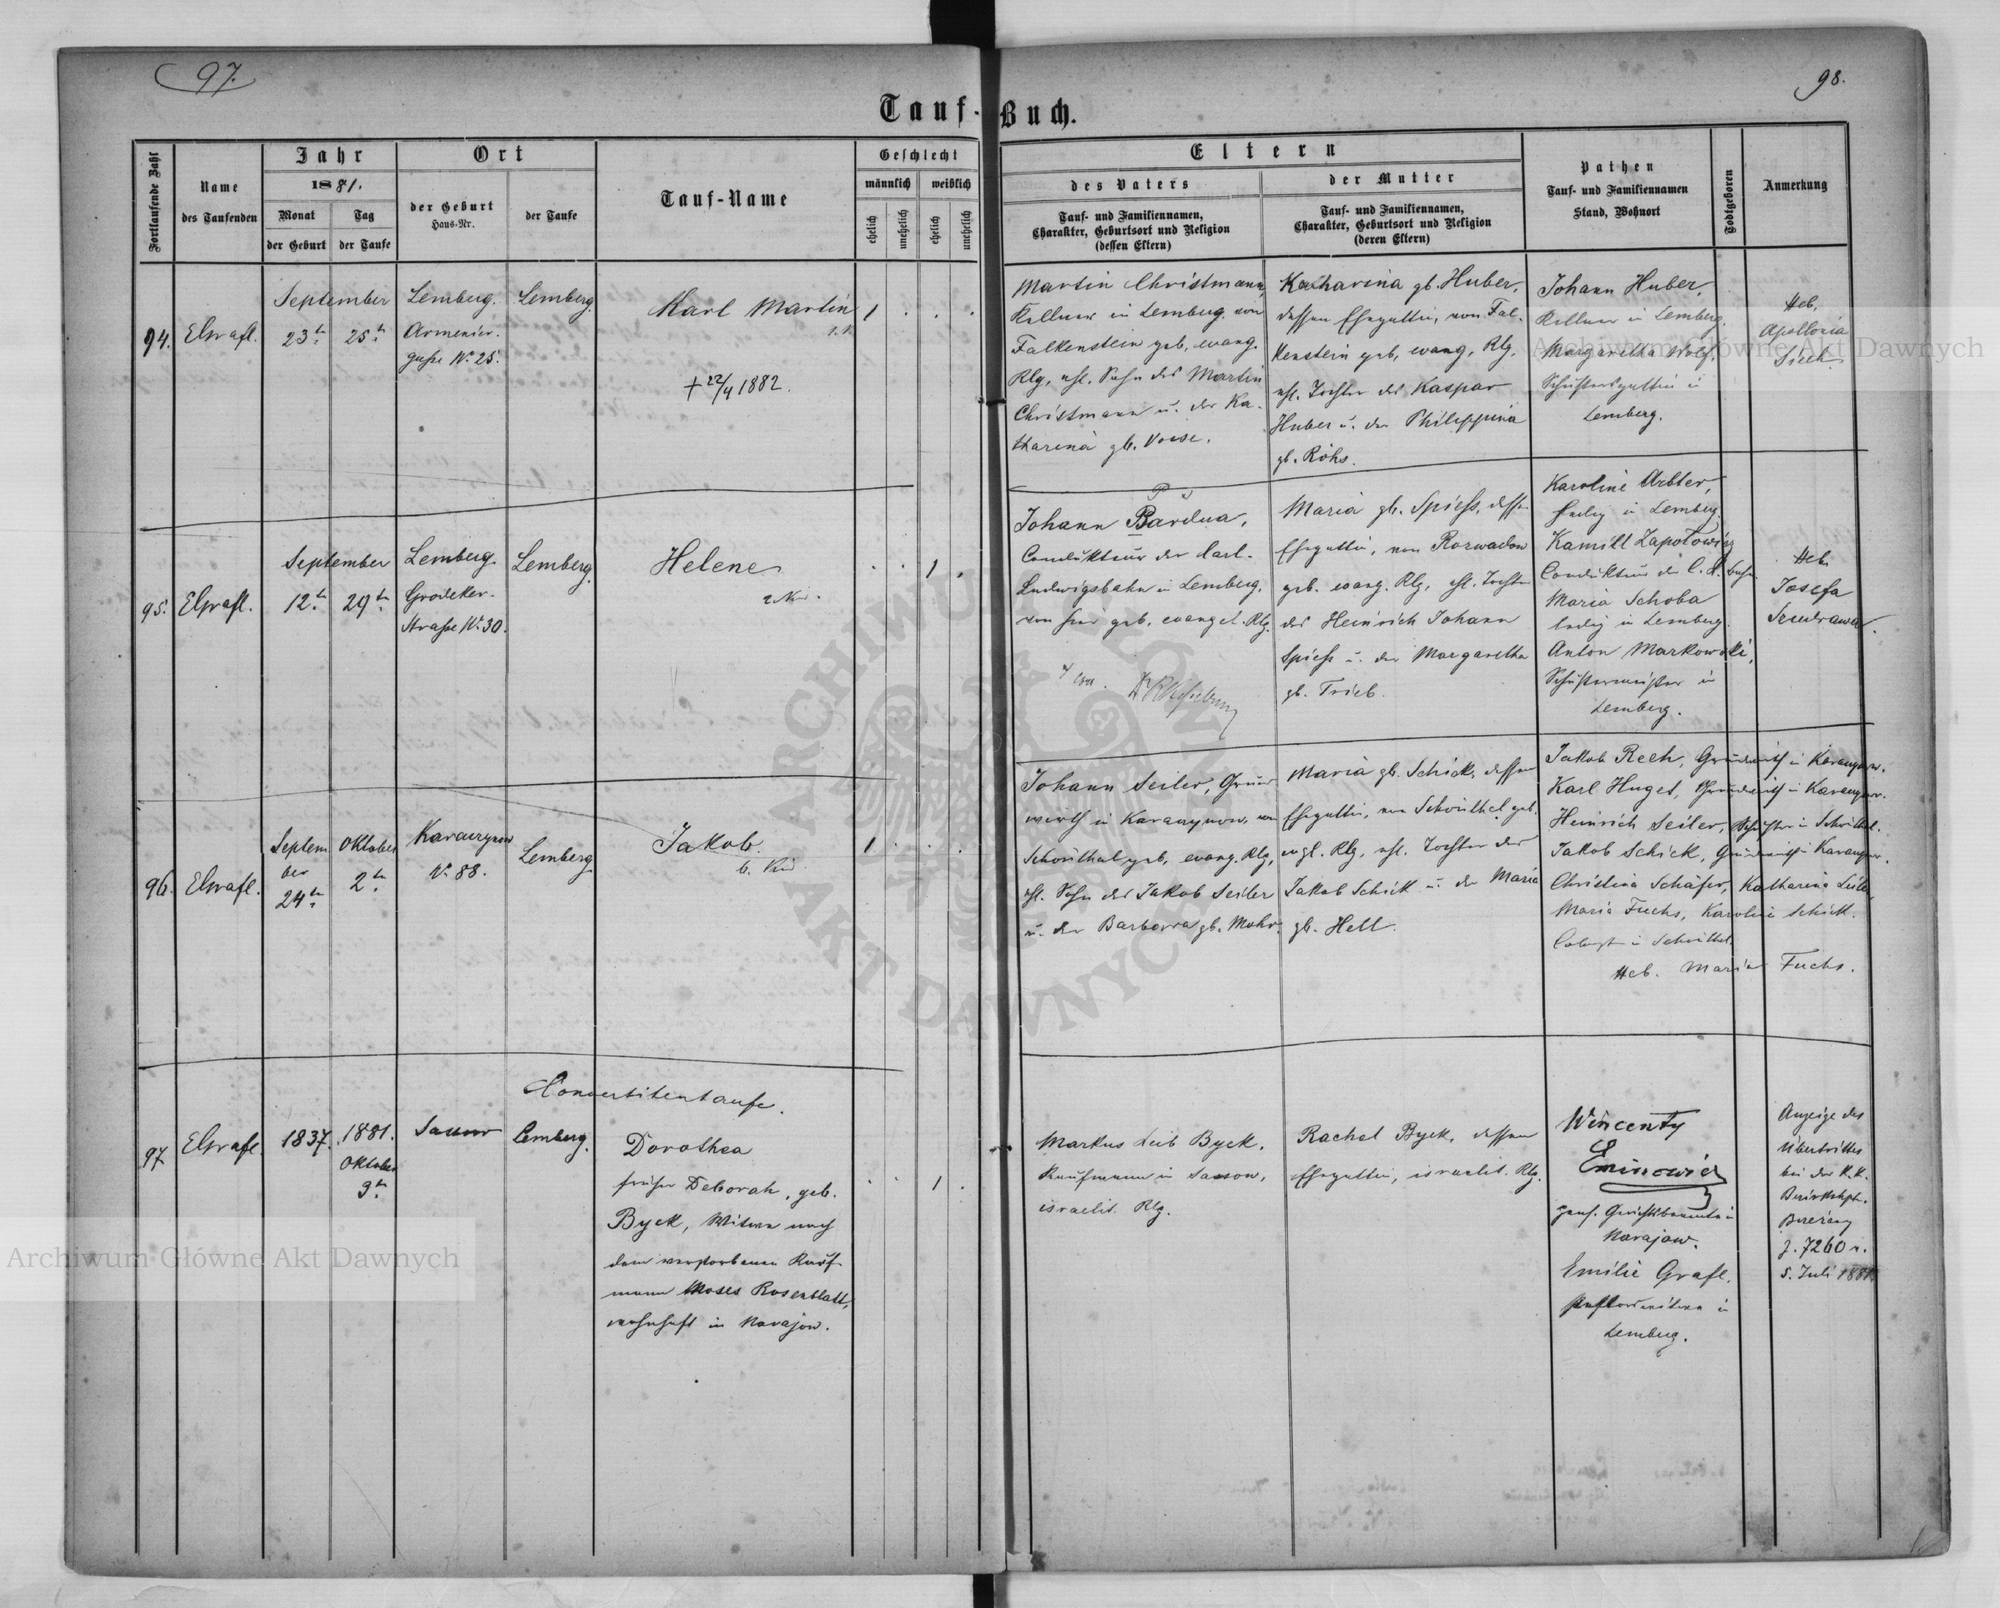 97.
98.
Tauf-Buch.
Fortlaufende Zahl
Name
des Taufenden
Jahr
1881.
Monat
Tag
der Geburt
der Taufe
Ort
der Geburt
Haus-Nr.
der Taufe
Tauf-Name
Geschlecht
männlich
weiblich
ehelich
unehelich
ehelich
unehelich
Eltern
des Vaters
Tauf- und Familiennamen,
Charakter, Geburtsort und Religion
(dessen Eltern)
der Mutter
Tauf- und Familiennamen,
Charakter, Geburtsort und Religion
(deren Eltern)
Pathen
Tauf- und Familiennamen
Stand, Wohnort
Todtgeboren
Anmerkung
94.
September
23t.
25t.
Lemberg.
Armenier-
gasse No 25.
Lemberg.
Karl Martin
+ 22/4 1882.
1
Martin Christmann,
Kellner in Lemberg, von
Falkenstein geb, evang.
Rlg, ehl. Sohn des Martin
Christmann u. der Ka-
tharina gb.
Katharina gb. Huber,
dessen Ehegattin, von Fal-
kenstein geb, evang, Rlg,
ehl. Tochter des Kaspar
Huber u. der Philippina
gb. Röhs.
Johann Huber,
Kellner in Lemberg.
Margaretha Wolf,
Schustersgattin in
Lemberg.
Heb.
Apollonia
95.
September
12t.
29t.
Lemberg.
Grodeker-
Strasse No 30.
Lemberg.
Helene
1
Johann Bardua,
Condukteur der Carl-
Ludwigsbahn in Lemberg,
von hier geb, evangel. Rlg.
Maria gb. Spiess, dessen
Ehegattin, von Rozwadow
geb. evang. Rlg, ehl. Tochter
des Heinrich Johann
Spiess u. der Margaretha
gb. Trieb.
Karoline Arbter,
ledig in Lemberg.
Kamill
Condukteur der C. L. Bahn.
Maria Schoba
ledig in Lemberg.
Anton Markowski,
Schustermeister in
Lemberg.
Heb.
Josefa
96.
Septem
ber
24t.
Oktober
2t.
No 88.
Lemberg.
Jakob.
1
Johann Seiler, Grund-
wirth in
Schönthal geb, evang. Rlg,
ehl. Sohn des Jakob Seiler
u. der Barbara gb. Mohr.
Maria gb. Schick, dessen
Ehegattin, von Schönthal geb.
evgl. Rlg, ehl. Tochter des
Jakob Schick u. der Maria
gb. Hell.
Jakob Rech, Grundwirth in
Karl Huget, Grundwirth in
Heinrich Seiler, in Schönthal.
Jakob Schick, Grundwirth in
Christina Schäfer, Katharina Seiler,
Maria Fuchs, Karoline Schick.
in Schönthal.
Heb. Maria Fuchs.
Convertitentaufe.
97
1837.
1881.
Oktober
9t.
Sassow
Lemberg.
Dorothea
früher Deborah, geb.
Byck, Witwe nach
dem verstorbenen Kauf-
mann Moses Rosenblatt,
wohnhaft in Narajow.
1
Markus Leib Byck,
Kaufmann in Sassow,
israelit. Rlg.
Rachel Byck, dessen
Ehegattin, israelit. Rlg.
Wincenty
Eminowicz
pens. Gerichtsbeamte in
Narajow.
Emilie Grafl.
Pastorswitwe in
Lemberg.
Anzeige des
Übertrittes
bei der K.K.
Bezirkshpt.
z. 7260 v.
5. Juli 1881.
Archiwum Główne Akt Dawnych
Archiwum Główne Akt Dawnych
ARCHIWUM GŁÓWNE
AKT DAWNYCH